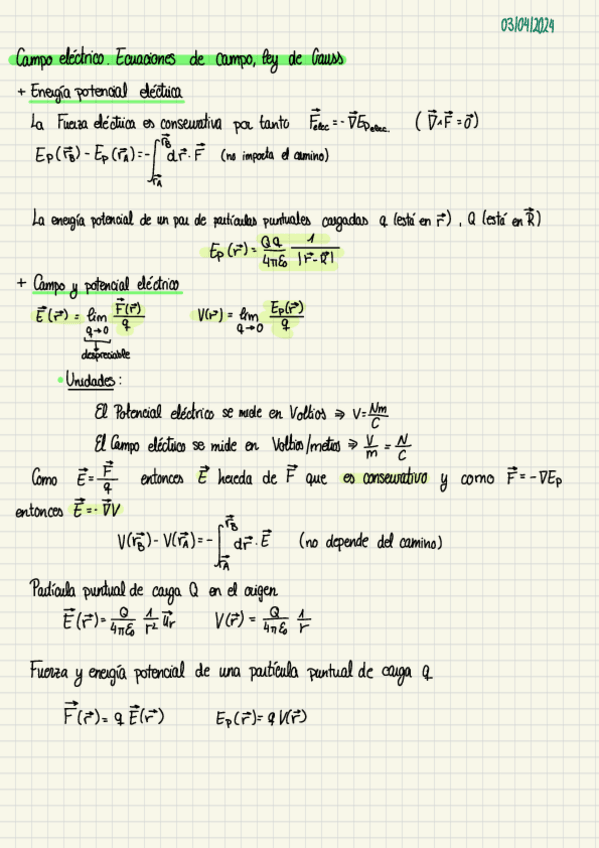 03/04/2024
Campo eléctrico. Ecuaciones de campo, ley de Gauss
+ Energía potencial eléctrica
La Fuerza eléctrica es conservativa por tanto F⃗elec = -∇⃗Ep elec. (∇⃗∧F⃗=0⃗)
Ep(r⃗B) - Ep(r⃗A) = -∫_{r⃗A}^{r⃗B} dr⃗·F⃗ (no importa el camino)
La energía potencial de un par de partículas puntuales cargadas q (está en r⃗), Q (está en R⃗)
Ep(r⃗) = Qq/4πε₀ 1/|r⃗-R⃗|
+ Campo y potencial eléctrico
E⃗(r⃗) = lim q→0 F⃗(r⃗)/q V(r⃗) = lim q→0 Ep(r⃗)/q
despreciable
• Unidades:
El Potencial eléctrico se mide en Voltios ⇒ V = Nm/C
El Campo eléctrico se mide en Voltios/metros ⇒ V/m = N/C
Como E⃗ = F⃗/q entonces E⃗ hereda de F⃗ que es conservativo y como F⃗ = -∇Ep
entonces E⃗ = -∇⃗V
V(r⃗B) - V(r⃗A) = -∫_{r⃗A}^{r⃗B} dr⃗·E⃗ (no depende del camino)
Partícula puntual de carga Q en el origen
E⃗(r⃗) = Q/4πε₀ 1/r² u⃗r V(r⃗) = Q/4πε₀ 1/r
Fuerza y energía potencial de una partícula puntual de carga q
F⃗(r⃗) = q E⃗(r⃗) Ep(r⃗) = q V(r⃗)